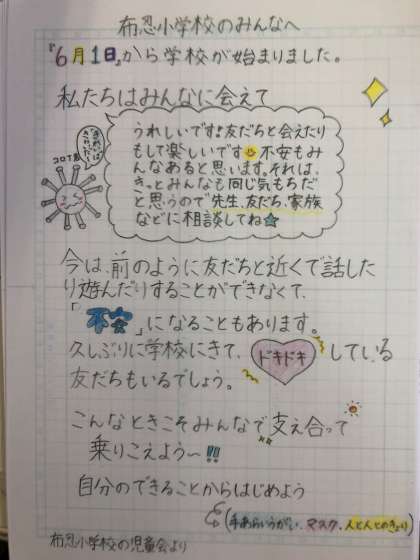 布忍小学校のみんなへ
『6月1日』から学校が始まりました。
私たちはみんなに会えて
コロナ君
うれしいです!友だちと会えたり
もして楽しいです 不安もみ
んなあると思います。それは、
きっとみんなも同じ気もちだ
と思うので"先生、友だち、家族
などに相談してね
今は、前のように友だちと近くで話した
り遊んだりすることができなくて、
「不安」になることもあります。
久しぶりに学校にきて、ドキドキしている
友だちもいるでしょう。
こんなときこそみんなで支え合って
乗りこえよう〜!!
自分のできることからはじめよう
(手あらいうがい、マスク、人と人とのきょり)
布忍小学校の児童会より